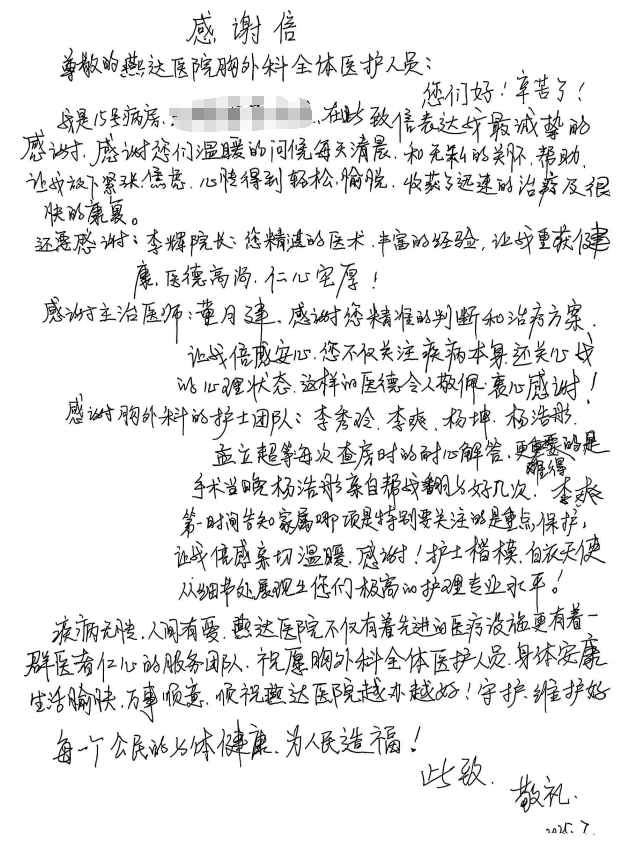 感谢信
尊敬的燕达医院胸外科全体医护人员：
您们好！辛苦了！
我是15号病房，在此致信表达我最诚挚的
感谢。感谢您们温暖的问候每天清晨，和无私的关怀、帮助，
让我放下紧张、焦虑，心情得到轻松、愉悦，收获了迅速的治疗及很
快的康复。
还要感谢：李辉院长：您精湛的医术，丰富的经验，让我重获健
康，医德高尚，仁心宽厚！
感谢主治医师：董月建，感谢您精准的判断和治疗方案，
让我倍感安心，您不仅关注疾病本身，还关心我
的心理状态，这样的医德令人敬佩，衷心感谢！
感谢胸外科的护士团队：李秀玲、李爽、杨坤、杨浩彤、
孟立超等每次查房时的耐心解答，更重要的是
难得
手术当晚杨浩彤亲自帮我翻身好几次，李爽
第一时间告知家属哪项是特别要关注的是重点保护，
让我倍感亲切温暖，感谢！护士楷模，白衣天使
从细节处展现出您们极高的护理专业水平！
疾病无情，人间有爱，燕达医院不仅有着先进的医疗设施更有着一
群医者仁心的服务团队，祝愿胸外科全体医护人员，身体安康
生活愉快，万事顺意，顺祝燕达医院越办越好！守护、维护好
每一个公民的身体健康，为人民造福！
此致
敬礼
2025.7.